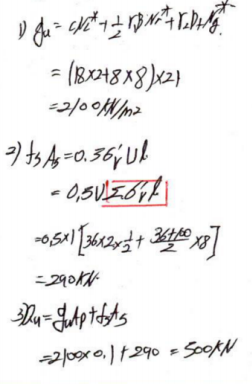 1) qu = cNc* + 1/2 γBNr* + γ2DfNq*
= (18×2+8×8)×21
= 2100 kN/m2
2) fsAs = 0.3σv'Ul
= 0.5U Σσv'l
= 0.5×1[36×2×1/2 + (36+100)/2 ×8]
= 290kN
3) Qu = quAp+fsAs
= 2100×0.1+290 = 500kN